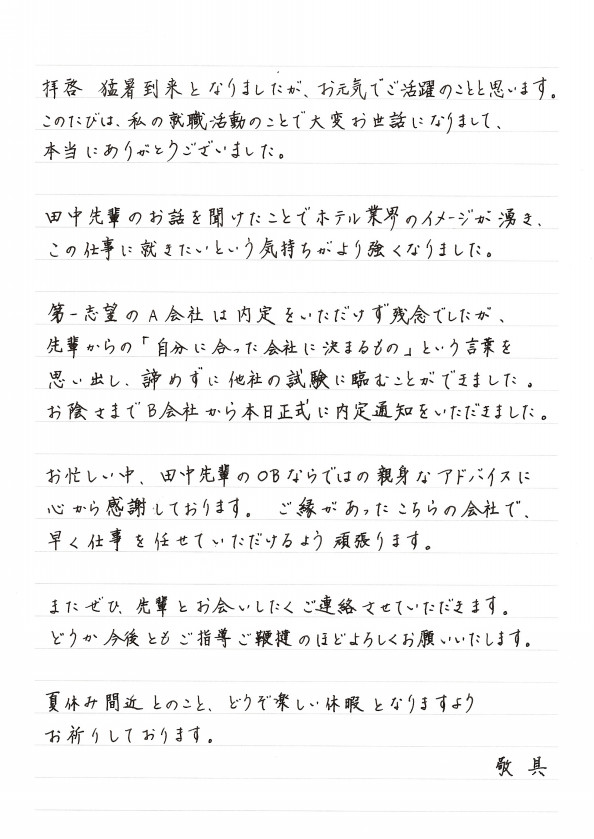 拝啓　猛暑到来となりましたが、お元気でご活躍のことと思います。
このたびは、私の就職活動のことで大変お世話になりまして、
本当にありがとうございました。
田中先輩のお話を聞けたことでホテル業界のイメージが湧き、
この仕事に就きたいという気持ちがより強くなりました。
第一志望のA会社は内定をいただけず残念でしたが、
先輩からの「自分に合った会社に決まるもの」という言葉を
思い出し、諦めずに他社の試験に臨むことができました。
お陰さまでB会社から本日正式に内定通知をいただきました。
お忙しい中、田中先輩のOBならではの親身なアドバイスに
心から感謝しております。　ご縁があったこちらの会社で、
早く仕事を任せていただけるよう頑張ります。
またぜひ、先輩とお会いしたくご連絡させていただきます。
どうか今後ともご指導ご鞭撻のほどよろしくお願いいたします。
夏休み間近とのこと、どうぞ楽しい休暇となりますよう
お祈りしております。
敬具